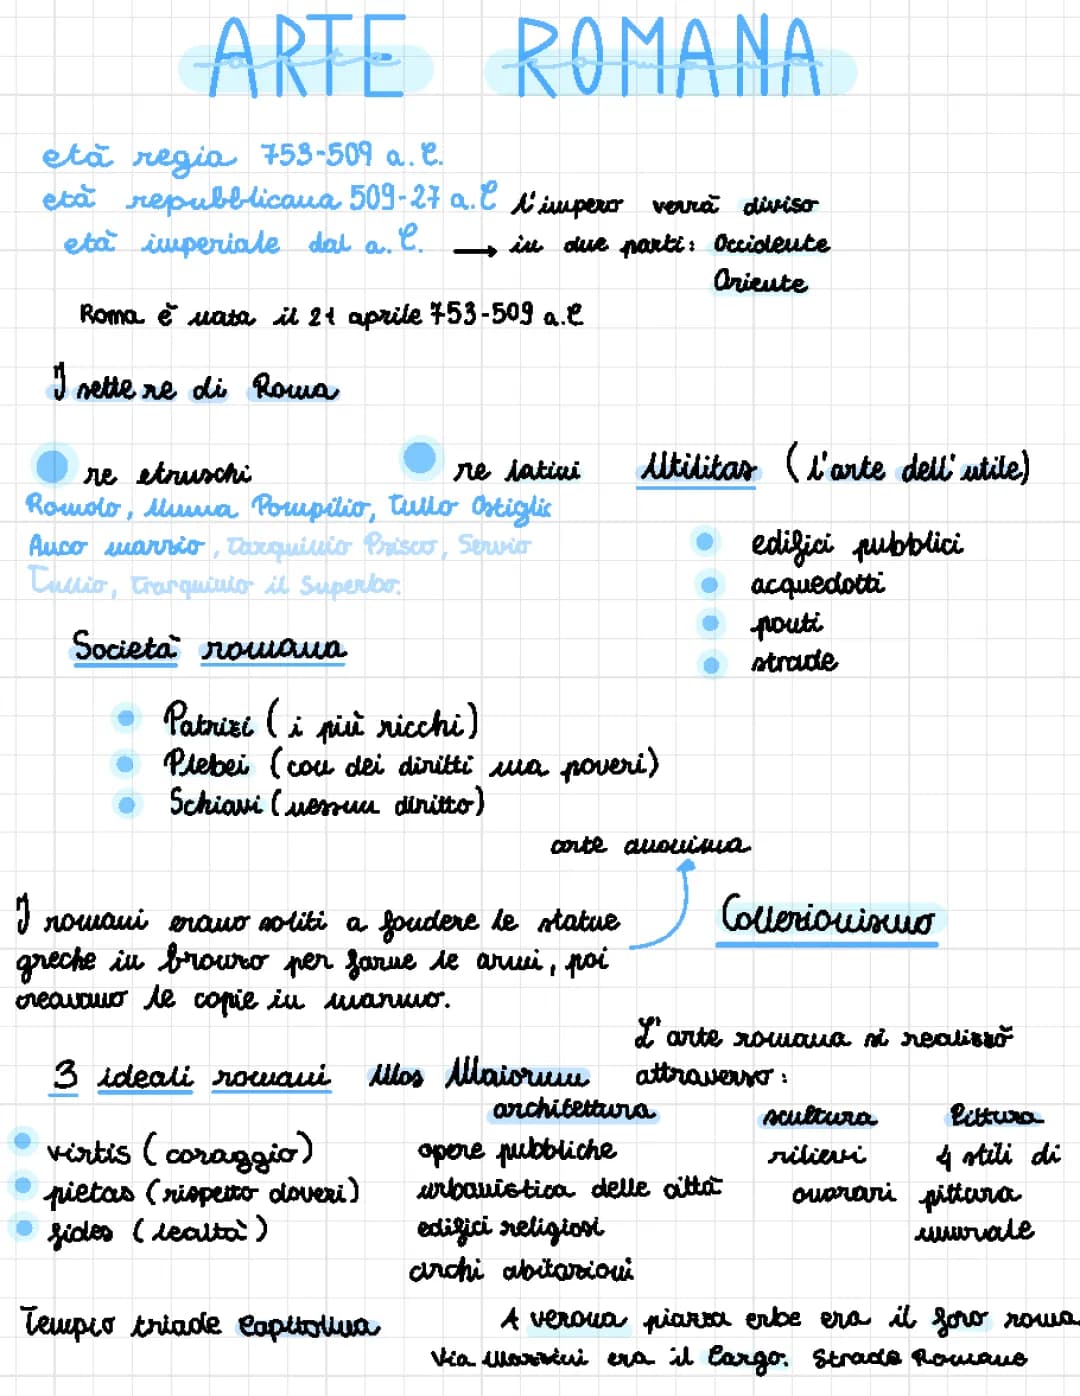 ARTE ROMANA
età regia 753-509 a.C.
età repubblicana 509-27 a.C
età imperiale dal a.C. → l'impero verrà diviso
in due parti: Occidente
Oriente
Roma è nata il 21 aprile 753-509 a.C
I sette re di Roma
re etruschi
re latini
Romolo, Numa Pompilio, Tullo Ostiglio
Anco marzio, Tarquinio Prisco, Servio
Tullio, Trarquinio il Superbo.
Utilitas (l'arte dell'utile)
edifici pubblici
acquedotti
ponti
strade
Società romana
Patrizi (i più ricchi)
Plebei (con dei diritti ma poveri)
Schiavi (nessun diritto)
arte anonima
I romani erano soliti a fondere le statue
greche in bronzo per farne le armi, poi
creavano le copie in marmo.
Collezionismo
3 ideali romani Mos Maiorum
virtis (coraggio)
pietas (rispetto doveri)
fides (lealtà)
L'arte romana si realizzò
attraverso:
architettura
opere pubbliche
urbanistica delle città
edifici religiosi
archi abitazioni
scultura
rilievi
onorari
Pittura
4 stili di
pittura
murale
Tempio triade Capitolina
A verona piazza erbe era il foro roma
Via Mazzini era il Cargo. Strade Romane